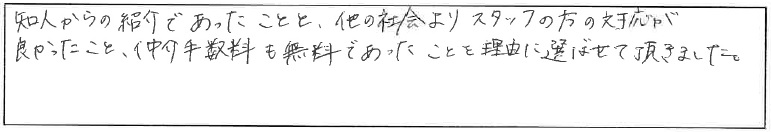 知人からの紹介であったことと、他の社会よりスタッフの方の対応が
良かったこと、仲介手数料も無料であったことを理由に選ばせて頂きました。